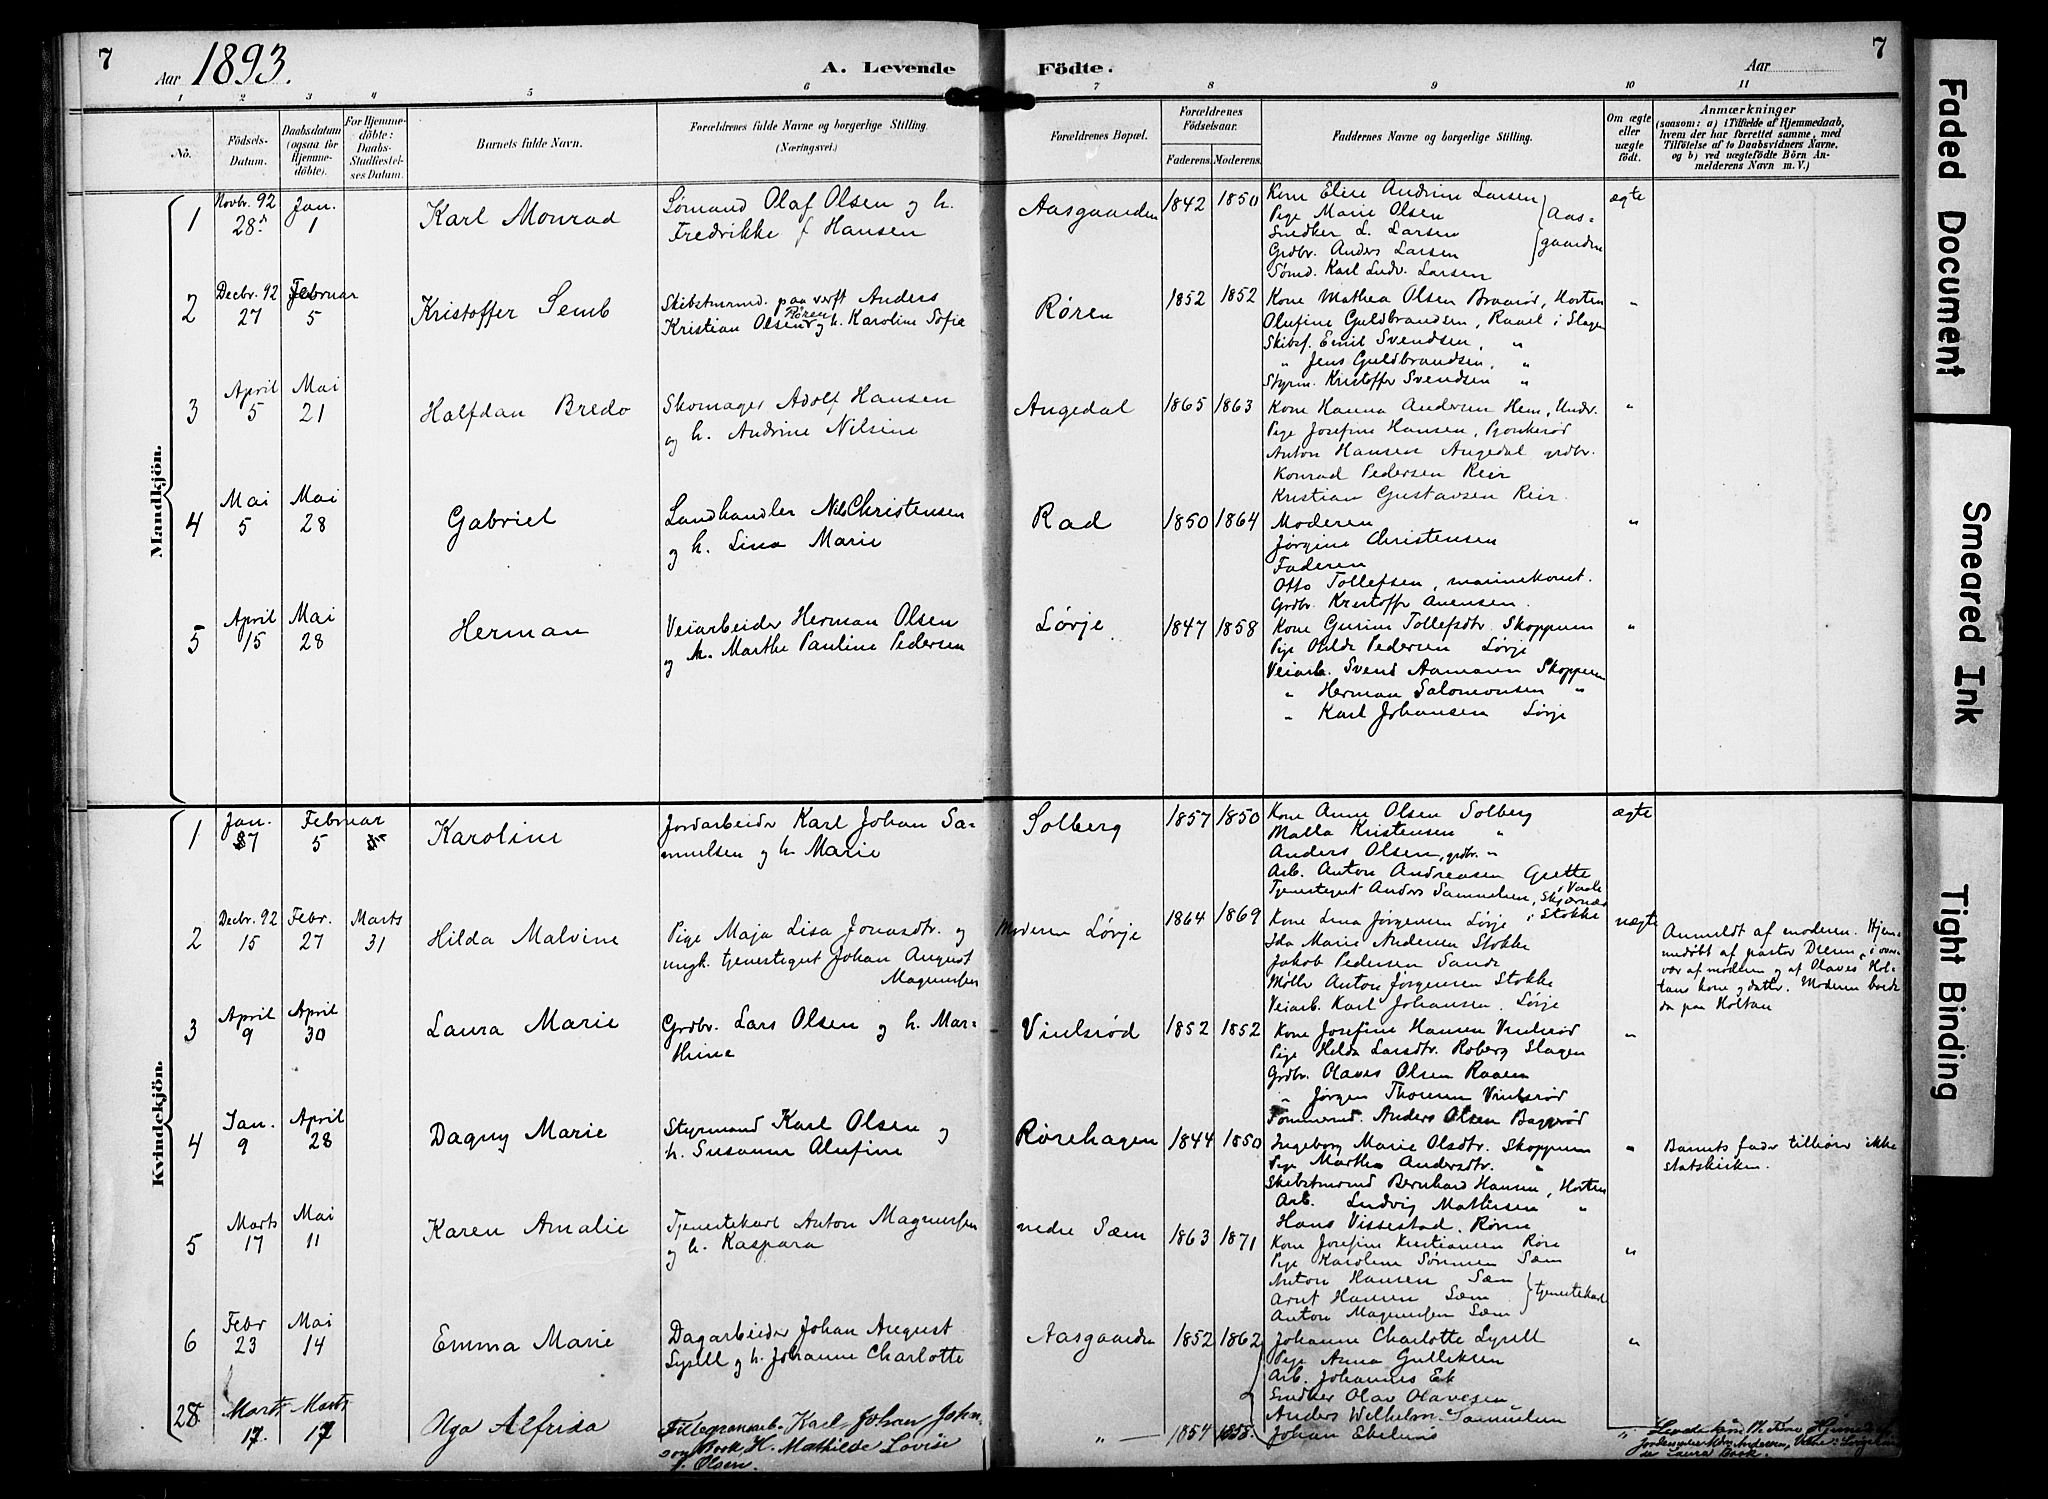 7
Aar 1893.
A. Levende
Födte.
Aar
7
1 2 3 4 5 6 7 8 9 10 11
No.
Födsels-
Datum.
Daabsdatum
(ogsaa for
Hjemme-
döbte).
For Hjemme-
döbte:
Daabs-
Stadfæstel-
ses Datum.
Barnets fulde Navn.
Forældrenes fulde Navne og borgerlige Stilling
(Næringsvei.)
Forældrenes Bopæl.
Forældrenes
Födselsaar.
Faderens. Moderens.
Faddernes Navne og borgerlige Stilling.
Om ægte
eller
uægte
födt.
Anmærkninger
(saasom: a) i Tilfælde af Hjemmedaab,
hvem der har forrettet samme, med
Tilföielse af to Daabsvidners Navne,
og b) ved uægtefödte Börn An-
melderens Navn m. V.)
Mandkjön.
1
Novbr. 92
28
Jan.
1
Karl Monrad
Sømand Olaf Olsen og h.
Fredrikke f Hansen
Aasgaarden
1842 1850
Kone Elise Andrine Larsen
Pige Marie Olsen
Snedker L. Larsen
Grdbr. Anders Larsen
Sømd. Karl Ludv. Larsen
Aas-
gaarden
ægte
2
Decbr. 92
27
Februar
5
Kristoffer Semb
Skibstmrmd. paa verft Anders
Kristian Olsen Røren og h. Karoline Sofie
Røren
1852 1852
Kone Mathea Olsen Braarød, Horten
Olufine Guldbrandsen, Raael i Slagen
Skibsf. Emil Svendsen, "
" Jens Guldbrandsen, "
Styrm. Kristoffer Svendsen "
"
3
April
5
Mai
21
Halfdan Bredo
Skomager Adolf Hansen
og h. Andrine Nilsine
Augedal
1865 1863
Kone Hanna Andersen Hem, Undr.
Pige Josefine Hansen,
Anton Hansen Augedal grdbr.
Konrad Pedersen Reir
Kristian Gustavsen Reir.
"
4
Mai
5
Mai
28
Gabriel
Landhandler Nils Christensen
og h. Lina Marie
Rad
1850 1864
Moderen
Jørgine Christensen
Faderen
Otto Tollefsen, marinekonst.
Grdbr. Kristoffer Avensen.
"
5
April
15
Mai
28
Herman
Veiarbeider Herman Olsen
og h. Marthe Pauline Pedersen
Løvje
1847 1858
Kone Gurine Tollefsdtr. Skoppum
Pige Hilda Pedersen Løvje
Veiarb. Svend Aamann Skoppum
" Herman Salomonsen "
" Karl Johansen Løvje
"
Kvindekjön.
1
Jan.
7
Februar
5
Karoline
Jordarbeider Karl Johan Sa-
muelsen og h. Marie
Solberg
1857 1850
Kone Anne Olsen Solberg
Malla Kristensen "
Anders Olsen, grdbr. "
Arb. Anton Andreasen Grette
Tjenestegut Anders Samuelsen, Skjærsnæs
i Stokke
ægte
2
Decbr. 92
15
Febr.
27
Marts
31
Hilda Malvine
Pige Maja Lisa Jonasdtr. og
ungk. tjenestegut Johan August
Magnussen
Moderen Løvje
1864 1869
Kone Lina Jørgensen Løvje
Ida Marie Andersen Stokke
Jakob Pedersen Sande
Møller Anton Jørgensen Stokke
Veiarb. Karl Johansen, Løvje
uægte
Anmeldt af moderen. Hjem-
medøbt af pastor Diesen, i over-
vær af moderen og af Olaves Hol-
tans kone og datter. Moderen boede
da paa Holtan
3
April
9
April
30
Laura Marie
Grdbr. Lars Olsen og h. Mar-
thine
Vinlsrød
1852 1852
Kone Josefine Hansen Vinlsrød
Pige Helda Larsdtr. Roberg Slagen
Grdbr. Olaves Olsen Raaen
" Jørgen Thoresen Vinlsrød
Tømmermd. Anders Olsen Baggerød
"
4
Jan.
9
April
28
Dagny Marie
Styrmand Karl Olsen og
h. Susanne Olufine
Rørehagen
1844 1850
Ingeborg Marie Olsdtr. Skoppum
Pige Marthe Andersdtr. "
Skibstmrmd Bernhard Hansen, Horten
Arb. Ludvig Mathisen "
Hans Vissestad, Røren
"
Barnets fader tilhører ikke
statskirken.
5
Marts
17
Mai
11
Karen Amalie
Tjenestekarl Anton Magnussen
og h. Kaspara
nedre Sæm
1863 1871
Kone Josefine Kristiansen Røre
Pige Karoline Sørensen Sæm
Anton Hansen Sæm
Arnt Hansen Sæm
Anton Magnussen Sæm
tjenestekarle
"
6
Febr
23
Mai
14
Emma Marie
Dagarbeider Johan August
Lysell og h. Johanne Charlotte
Aasgaarden
1852 1862
Johanne Charlotte Lysell
Pige Anna Gulliksen
Arb. Johannes Ek
Snedker Olav Olavesen
Anders Wilhelm Samuelsen
Johan Ekelund
"
28
Marts
17
Marts
17
Aga Alfrida
Karl Johan John-
son Book H. Mathilde Lovise
f. Olsen.
" —
1854 1858.
Laura Book.
Faded Document
Smeared Ink
Tight Binding